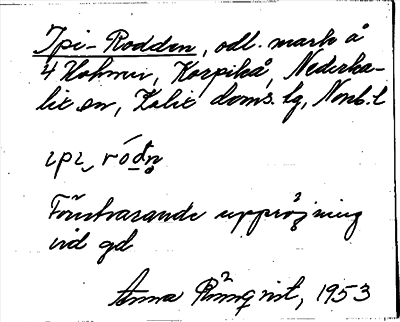 Ipi-Rodden, odl. mark å
4 Holmen, Korpikå, Nederka-
lix sn, Kalix doms.lg, Nonb. l
ıpı, ródn̥
Försvarande uppröjning
vid gd
Anna Rönnqvist, 1953